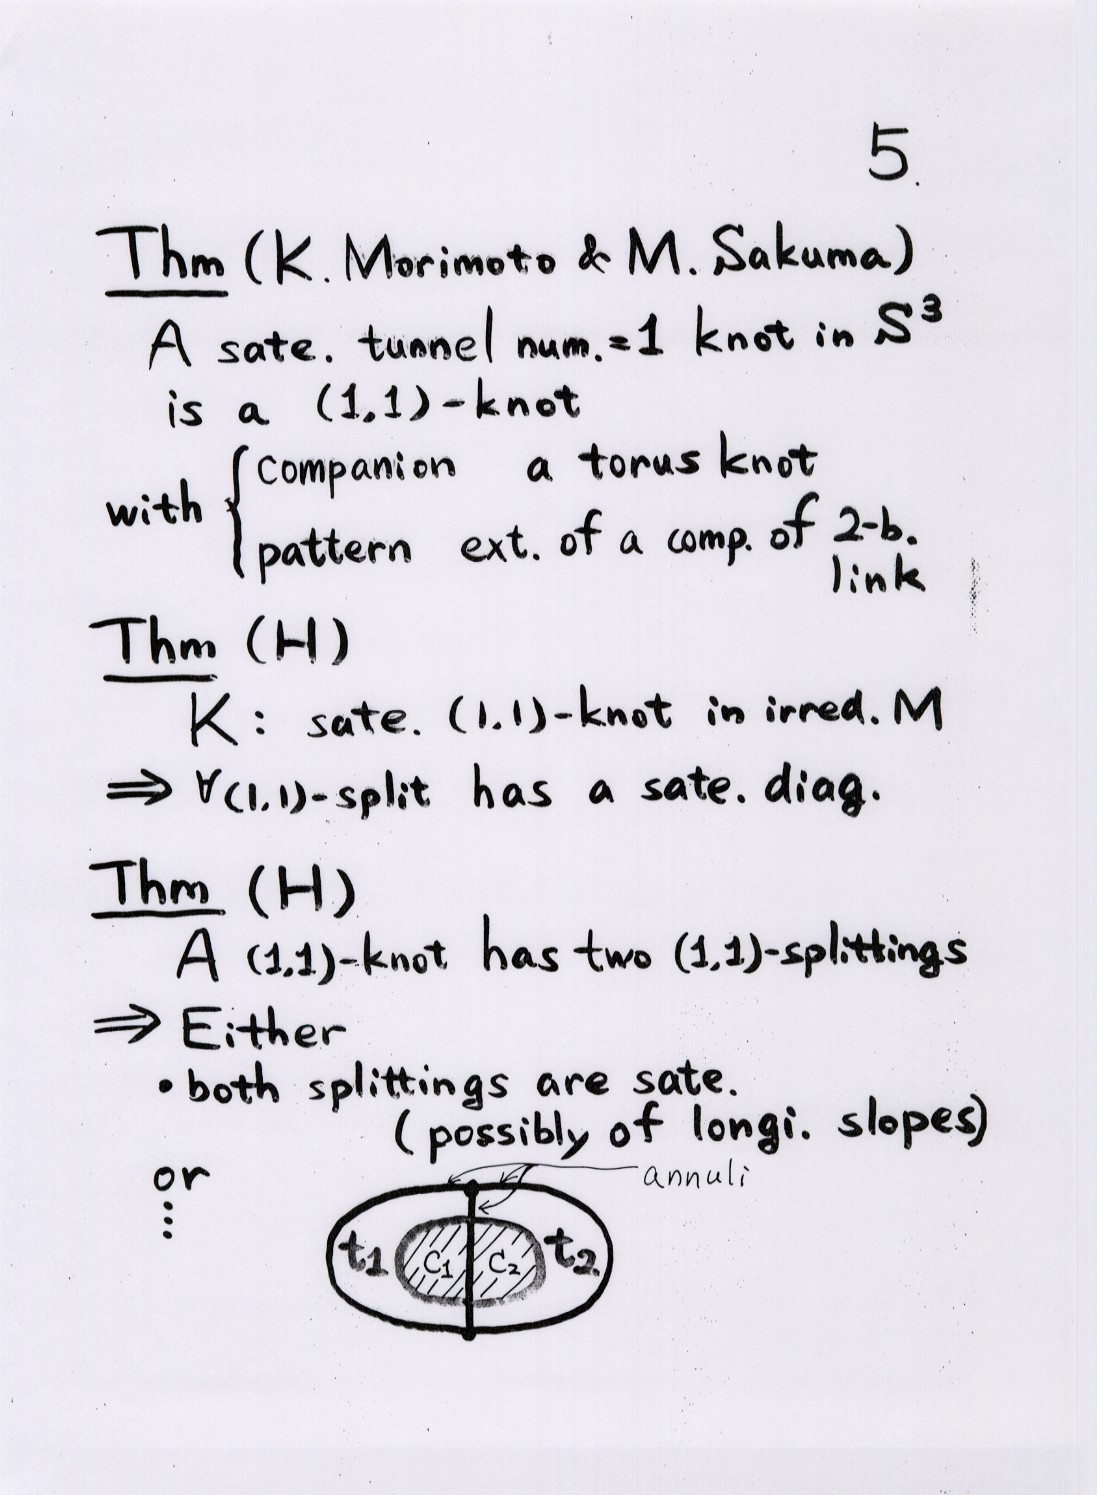 5.
Thm (K. Morimoto & M. Sakuma)
A sate. tunnel num.=1 knot in S³
is a (1,1)-knot
with { companion a torus knot
pattern ext. of a comp. of 2-b.
link
Thm (H)
K: sate. (1,1)-knot in irred. M
⇒ ∀(1,1)-split has a sate. diag.
Thm (H)
A (1,1)-knot has two (1,1)-splittings
⇒ Either
• both splittings are sate.
(possibly of longi. slopes)
or
⋮
annuli
t₁ C₁ C₂ t₂